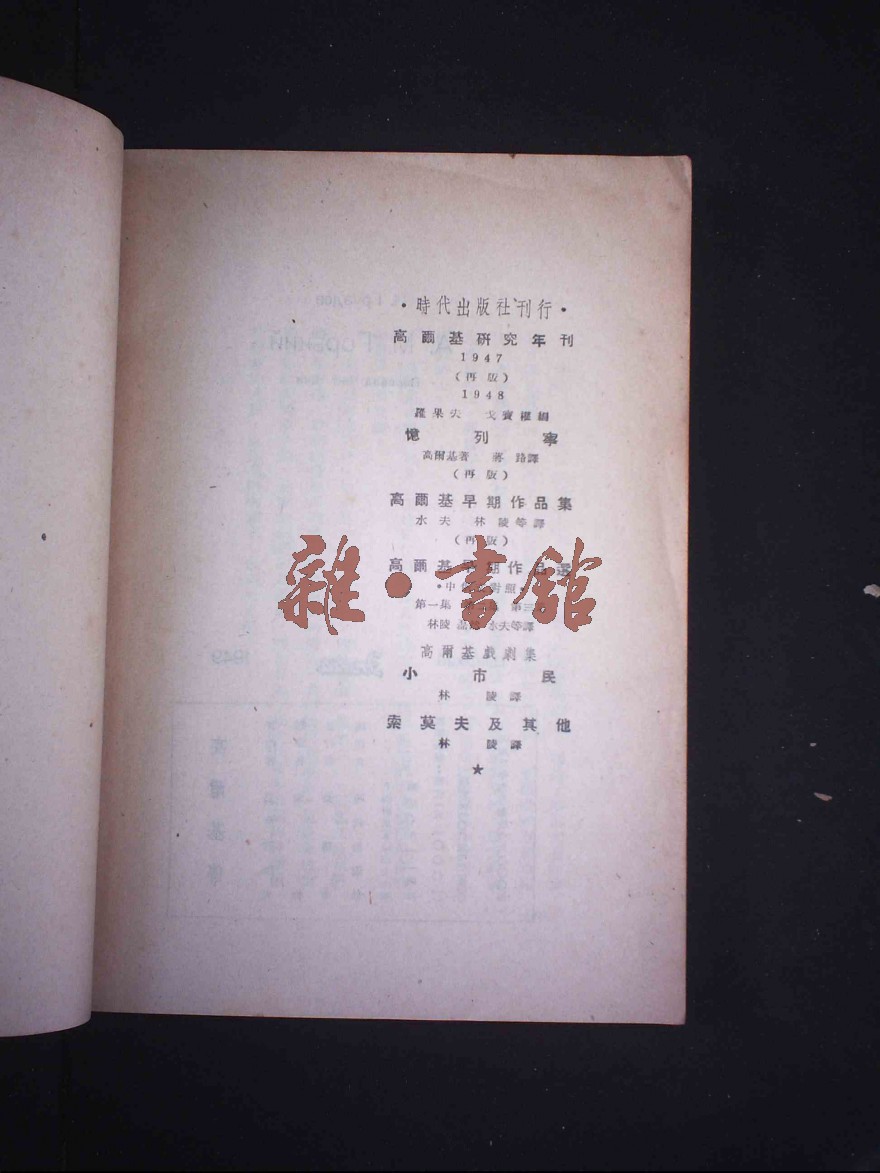 ·時代出版社刊行·
高爾基研究年刊
1947
（再版）
1948
羅果夫 戈寶權編
憶列寧
高爾基著 蔣路譯
（再版）
高爾基早期作品集
水夫 林陵等譯
（再版）
高爾基早期作品選
·中 對照·
第一集 第三
林陵 水夫等譯
高爾基戲劇集
小市民
林陵譯
索莫夫及其他
林陵譯
★
雜·書館
1949